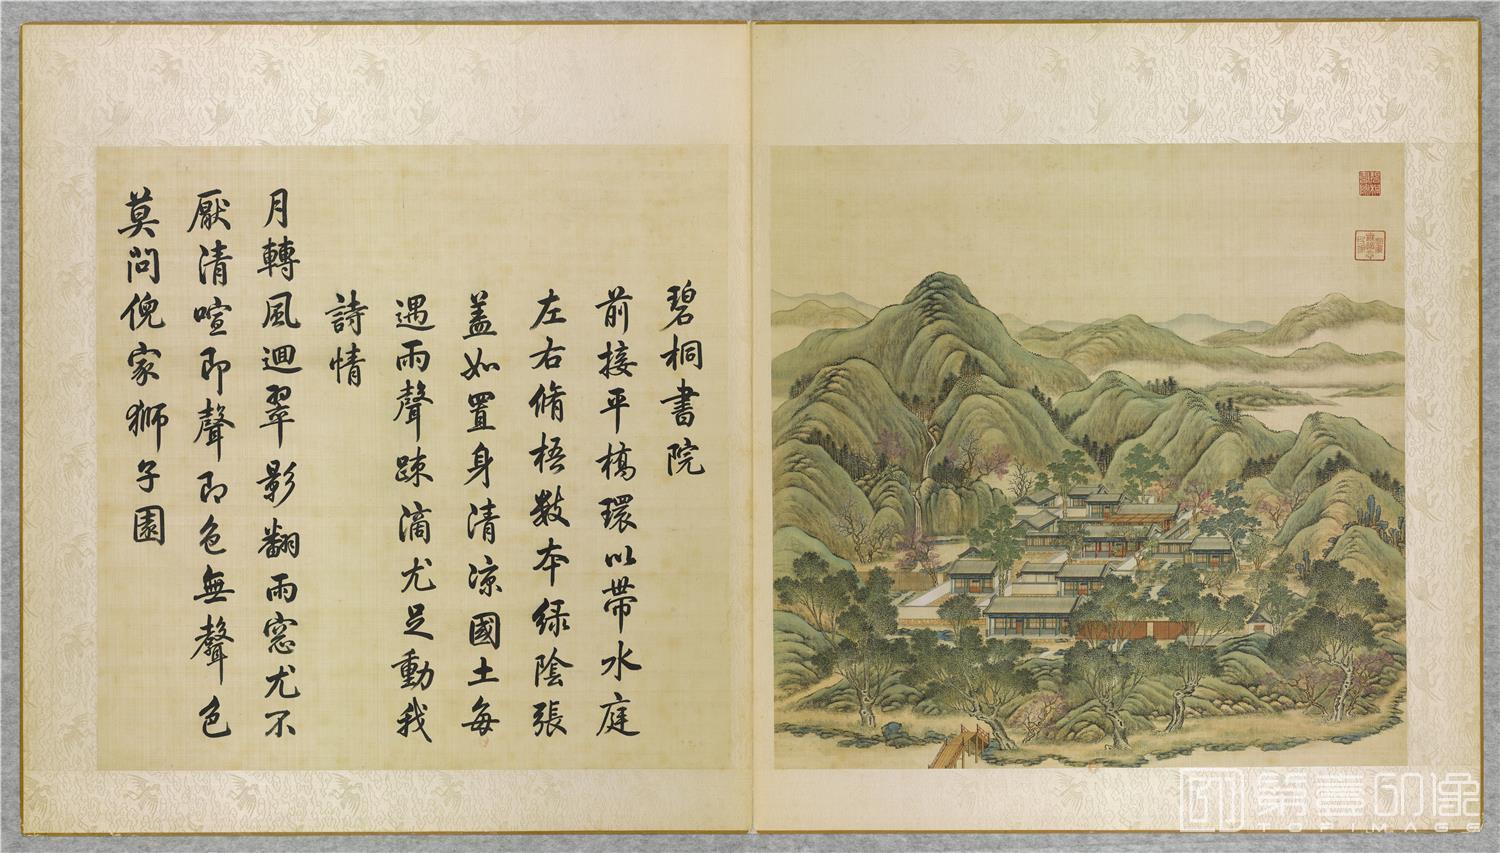 碧桐書院
前接平橋環以帶水庭
左右脩梧數本綠陰張
蓋如置身清凉國土每
遇雨聲疎滴尤足動我
詩情
月轉風迴翠影翻雨窓尤不
厭清喧即聲即色無聲色
莫問倪家獅子園
第壹印像
TOPIMAGE